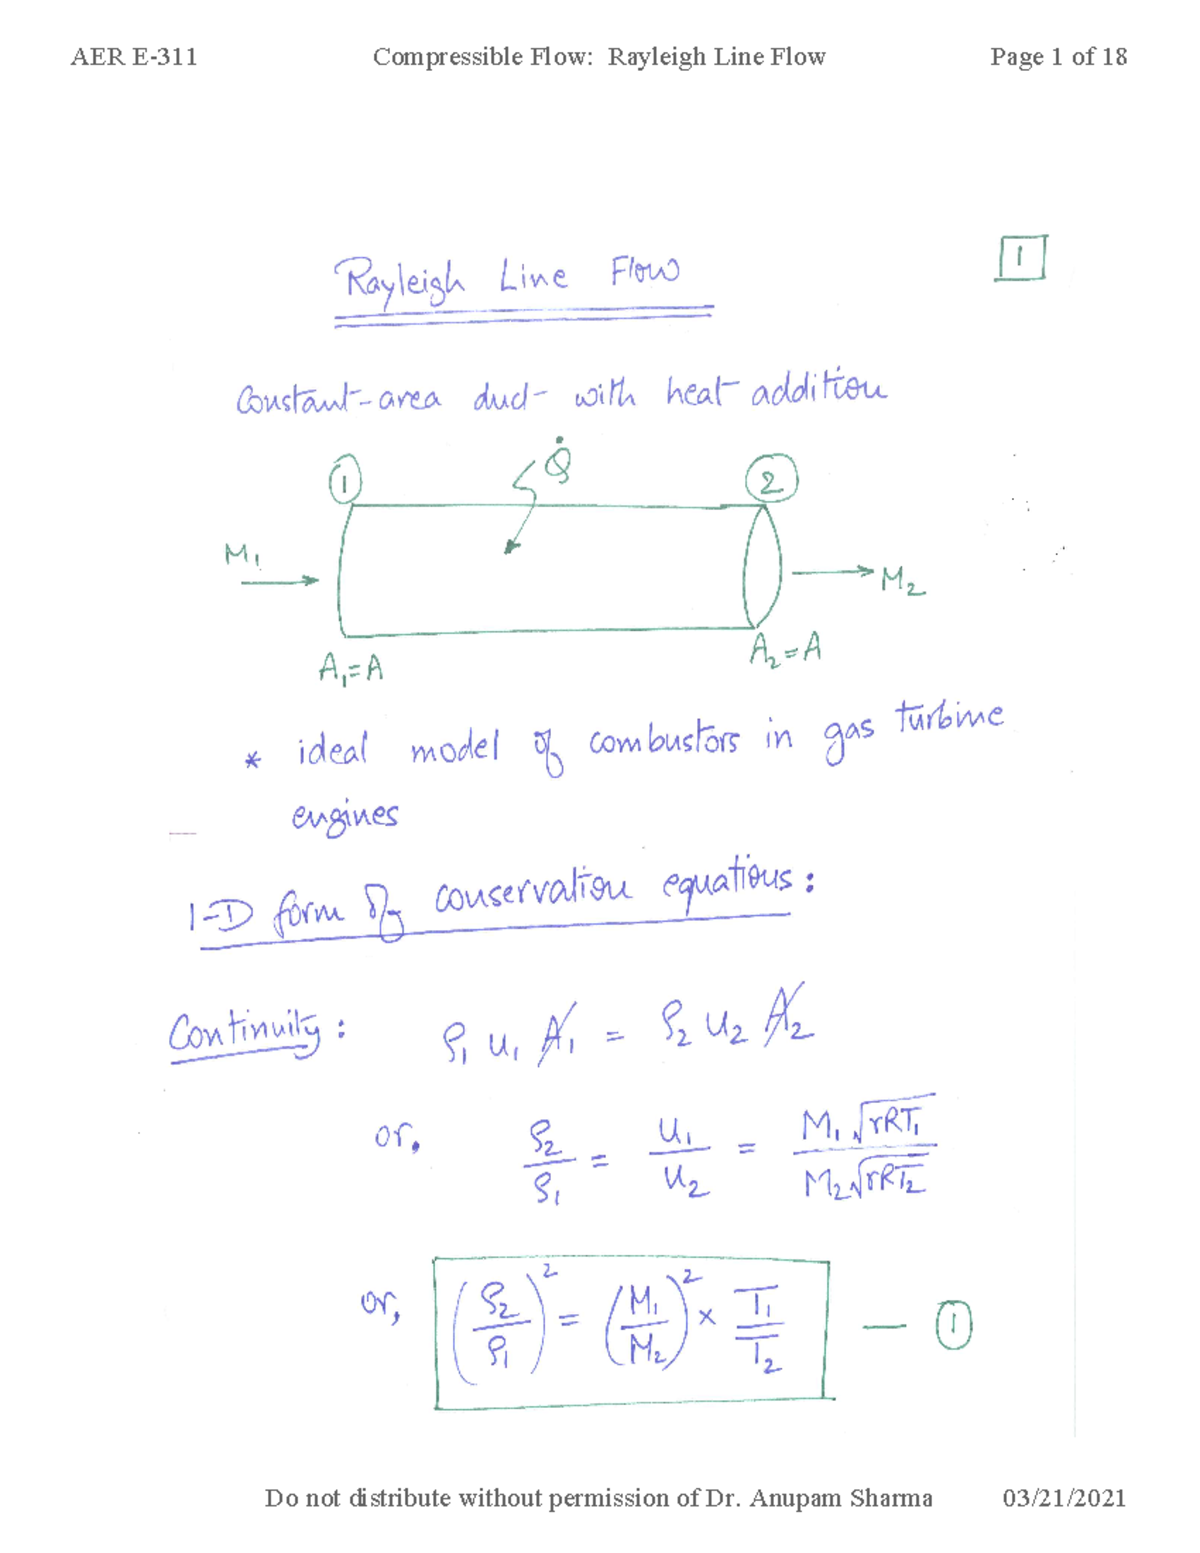 AER E-311 Compressible Flow: Rayleigh Line Flow Page 1 of 18
1
Rayleigh Line Flow
Constant-area duct with heat addition
Q̇
1 2
M₁
M₂
A₁=A
A₂=A
* ideal model of combustors in gas turbine
engines
1-D form of conservation equations:
Continuity: ρ₁ u₁ A₁ = ρ₂ u₂ A₂
or, ρ₂/ρ₁ = u₁/u₂ = M₁√γRT₁ / M₂√γRT₂
or, (ρ₂/ρ₁)² = (M₁/M₂)² × T₁/T₂ — 1
Do not distribute without permission of Dr. Anupam Sharma 03/21/2021